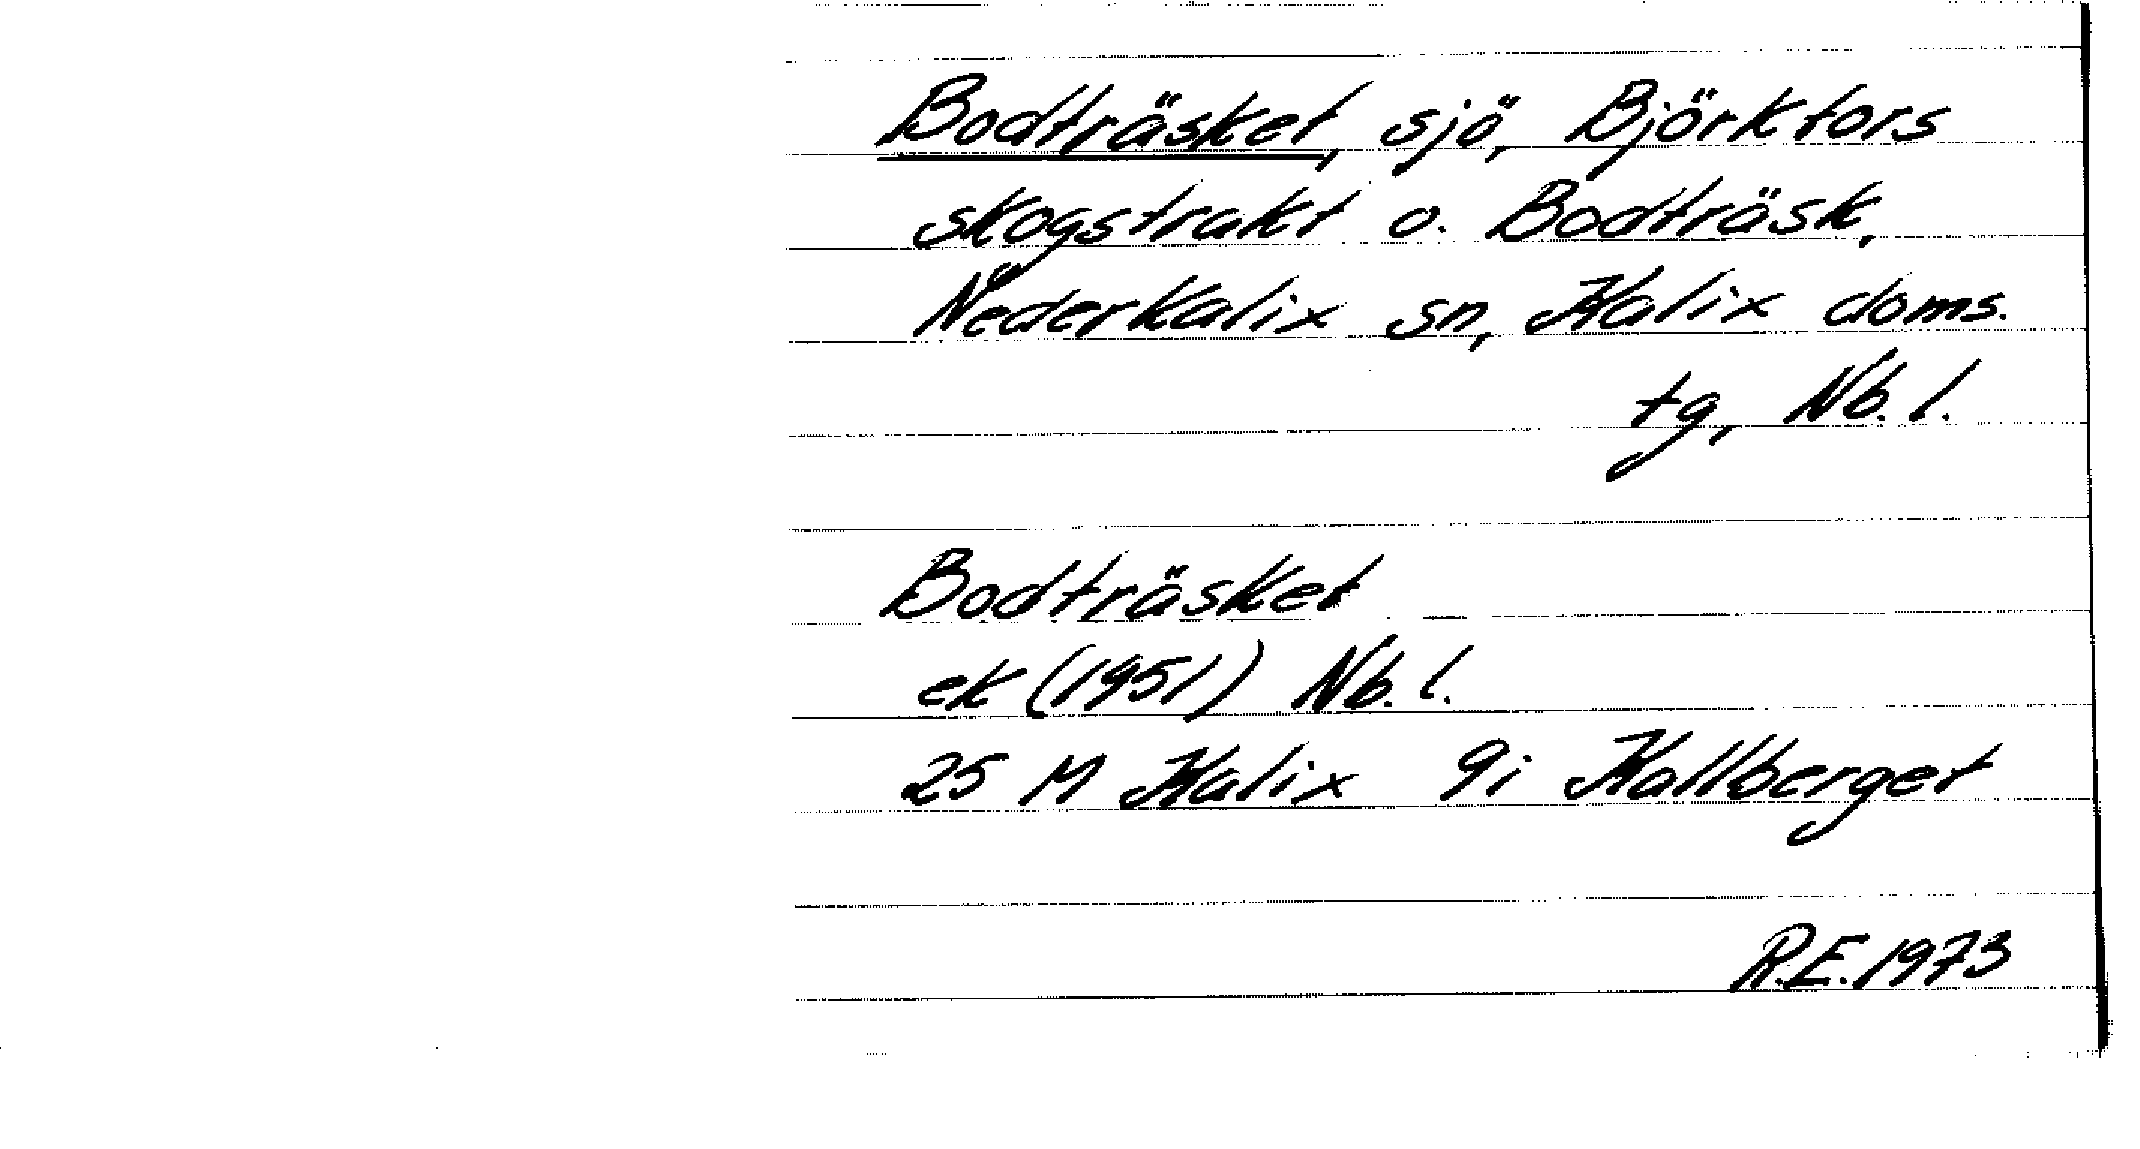 Bodträsket, sjö, Björkfors
skogstrakt o. Bodträsk,
Nederkalix sn, Kalix doms.
tg, Nb. l.
Bodträsket
ek (1951) Nb. l.
25 M Kalix 9i Kallberget
R.E. 1973